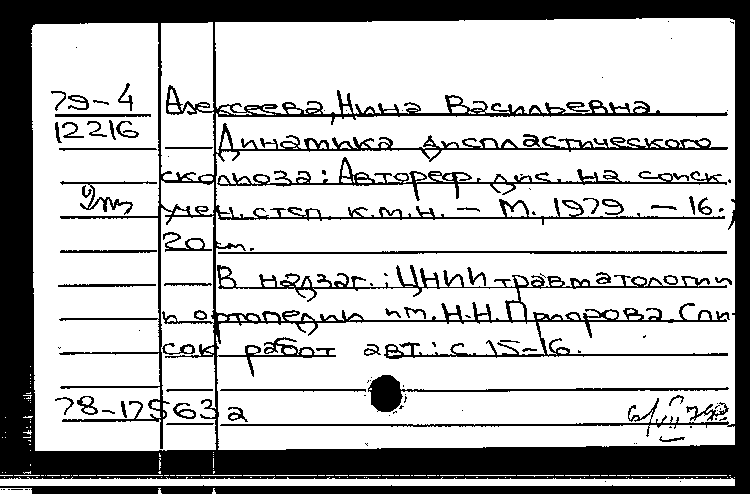 79-4 Алексеева, Нина Васильевна.
12216 Динамика диспластического
сколиоза: Автореф. дис. на соиск.
учен. степ. к.м.н. - М., 1979. - 16.;
20 см.
В надзаг.: ЦНИИ травматологии
и ортопедии им. Н.Н. Приорова. Спи-
сок работ авт.: с. 15-16.
78-175632а